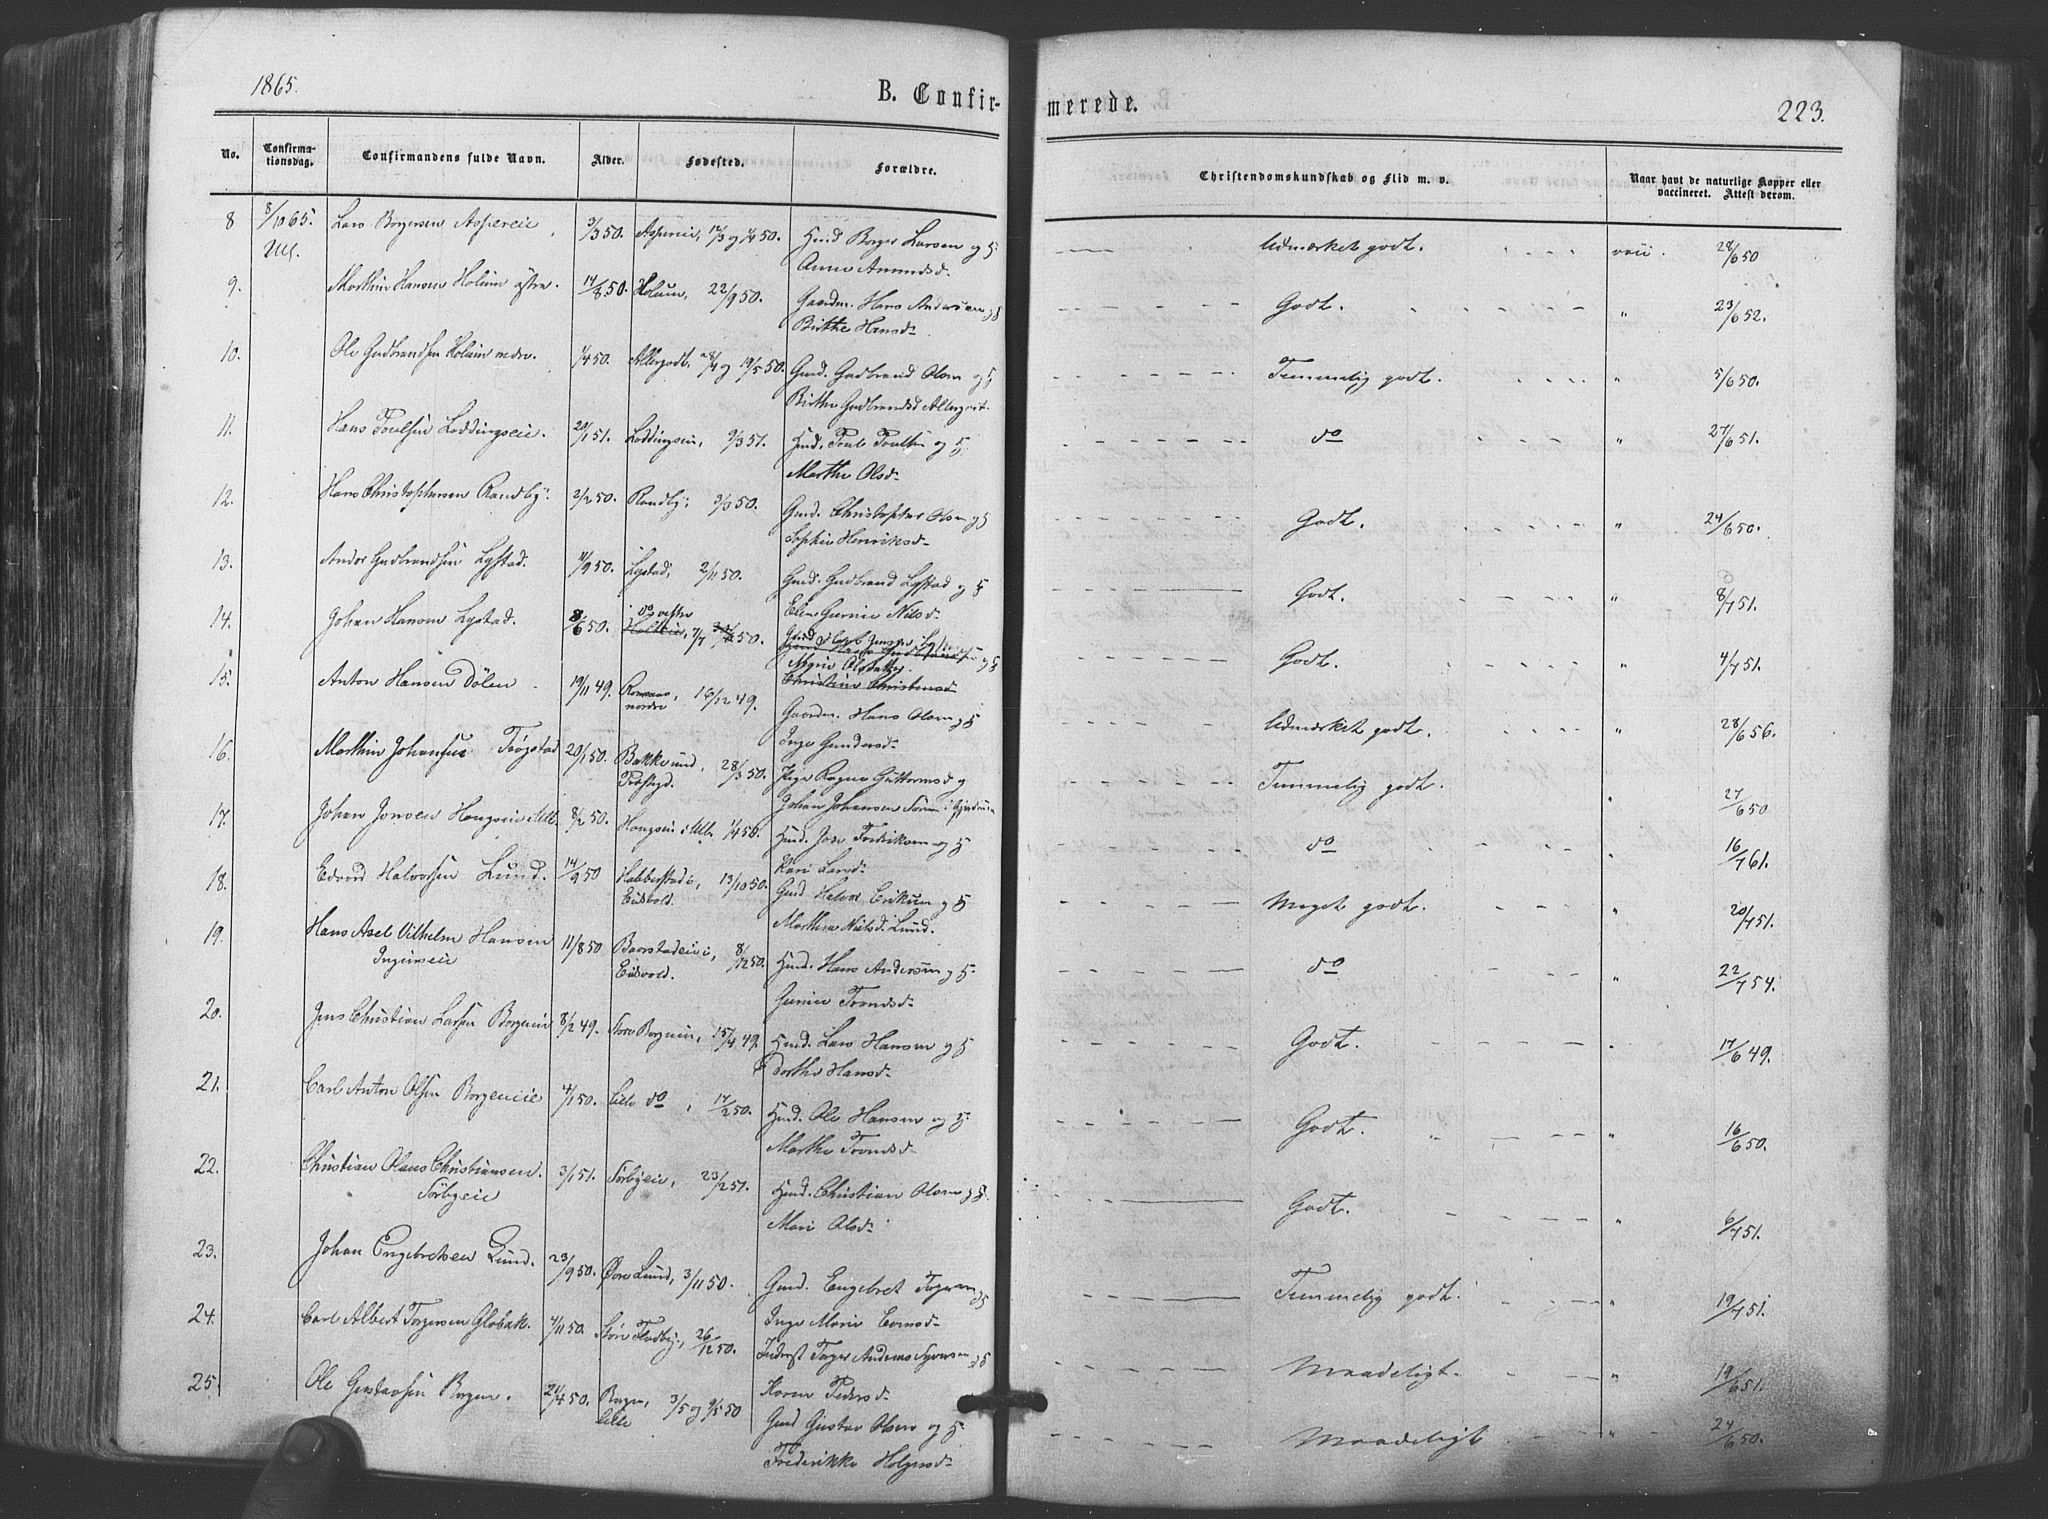 1865.
B. Confir-
merede.
223.
No.
Confirma-
tionsdag.
Confirmandens fulde Navn.
Alder.
Fødested.
Forældre.
Christendomskundskab og Flid m. v.
Naar havt de naturlige Kopper eller
vaccineret. Attest derom.
8 8/10 65. Lars Borgersen Aspereie 3/3 50. Aspereie, 12/3 og 1/4 50. Hmd Borger Larsen og H Udmærket godt. vacc. 28/6 50
Ull. Anne Amundsd.
9. Marthin Hansen Holum østre. 14/8 50. Holum, 22/9 50. Gaardm. Hans Andersen og H Godt. " 23/6 52.
Birthe Hansd.
10. Ole Gudbrandsen Holum nedre. 1/4 50. Allergodt, 28/4 og 19/5 50. Gmd. Gudbrand Olsen og H Temmelig godt. " 5/6 50.
Birthe Gudbrandsd Allergodt.
11. Hans Poulsen Loddingseie. 20/1 51. Loddingseie, 9/3 51. Hmd. Poul Poulsen og H. do " 27/6 51.
Marthe Olsd.
12. Hans Christophersen Randby. 2/2 50. Randby, 3/3 50. Gmd. Christopher Olsen og H Godt. " 24/6 50.
Sophie Henriksd.
13. Andor Gudbrandsen Lystad. 11/9 50. Lystad, 2/11 50. Gmd. Gudbrand Lystad og H Godt. " 8/7 51.
Elen Gurine Nilsd.
14. Johan Hansen Lystad. 8/6 50. do vestre 7/7 50. Godt. " 4/7 51.
Marie Olsdatter
Christine Christensd
15. Anton Hansen Dølen 19/11 49. Romsaas, 16/12 49. Gaardm. Hans Olsen og H Udmærket godt. " 28/6 56.
nordre Inge Gundersd.
16. Marthin Johansen Trøgstad 20/1 50. Bakke und, 28/3 50. Pige Ragne Guttormsd og Temmelig godt. " 27/6 50
Johan Johansen
17. Johan Jonsen Haugseie i Ull. 8/2 50. Haugseie i Ull. 1/4 50. Hmd. Jon Fredriksen og H do " 16/7 61.
Kari Larsd.
18. Edvard Halvorsen Lund. 14/9 50 Habberstad i, 13/10 50. Gmd Halvor Eriksen og H Meget godt. " 20/7 51.
Eidsvold. Marthea Nielsd. Lund.
19. Hans Axel Vilhelm Hansen 11/8 50. Baarstadeie i, 8/12 50. Hmd. Hans Andersen og H. do " 22/7 54.
Eidsvold. Gurine Trondsd.
20. Jens Christian Larsen Borgeneie 8/2 49. Store Borgeneie, 15/4 49. Hmd. Lars Hansen og H Godt. " 17/6 49.
Dorthe Hansd.
21. Carl Anton Olsen Borgeneie 4/1 50. Lille do, 17/2 50. Hmd. Ole Hansen og H. Godt. " 16/6 50.
Marthe Trondsd.
22. Christian Olaus Christiansen. 3/1 51. Sørbyeie, 23/2 51. Hmd. Christian Olsen og H. Godt. " 6/7 51.
Sørbyeie Mari Olsd.
23. Johan Engebretsen Lund. 23/9 50. Øvre Lund, 3/11 50. Gmd. Engebret og H Temmelig godt. " 19/7 51.
Inge Marie
24. Carl Albert Torgersen Globak. 4/11 50. Store Fladby, 26/12 50. Inderst Torger Andreas Syversen og H Maadeligt. " 19/6 51.
Karen Pedersd.
25. Ole Gustavsen Borgen. 21/4 50. Borgen, 3/5 og 9/5 50 Gmd Gustav Olsen og H. Maadeligt " 24/6 50.
Lille Frederikke Holgersd.